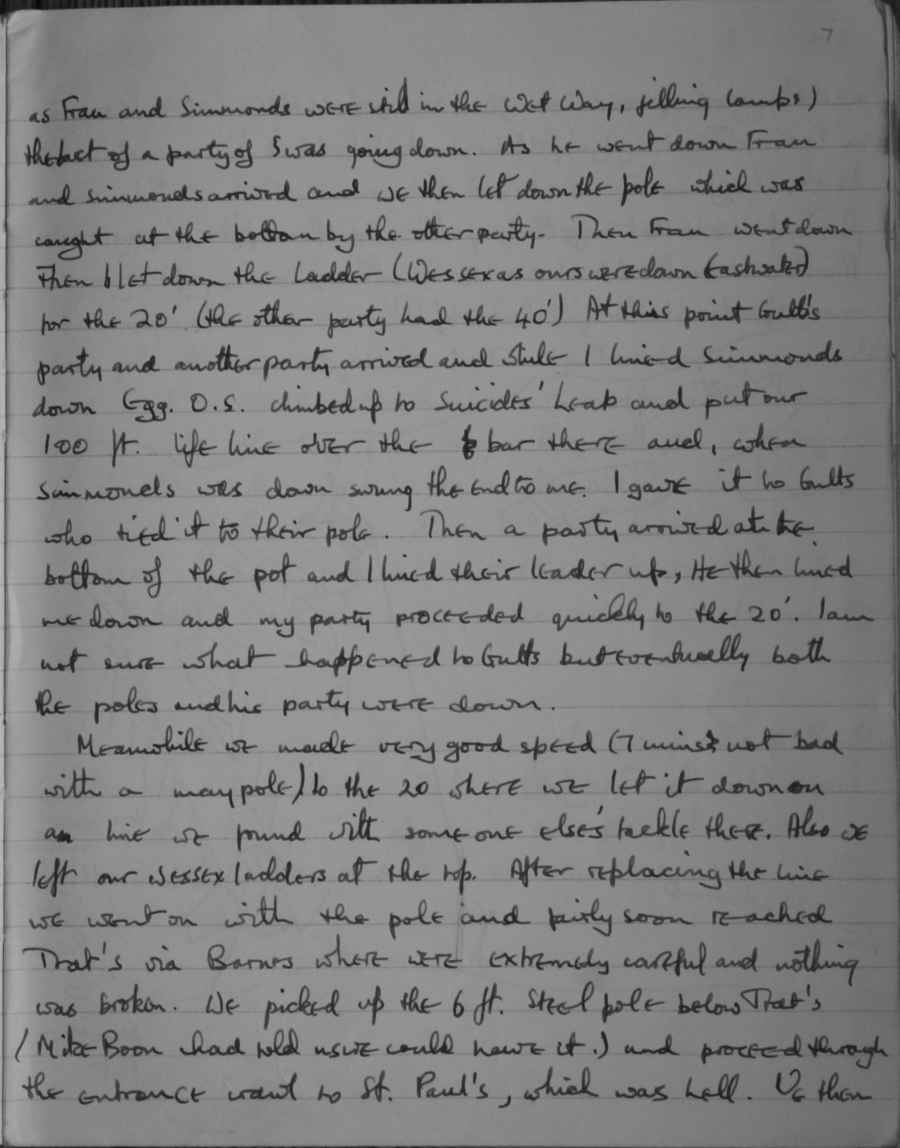 7
as Frau and Simmonds were still in the Wet Way, filling lamps)
the last of a party of 5 was going down. As he went down Frau
and Simmonds arrived and we then let down the pole which was
caught at the bottom by the other party. Then Frau went down
Then I let down the ladder (Wessex as ours were down Eastwater)
for the 20' (the other party had the 40') At this point Gults
party and another party arrived and while I lined Simmonds
down Egg. O.S. climbed up to Suicides' Leap and put our
100 ft. life line over the bar there and, when
Simmonds was down swung the end to me. I gave it to Gults
who tied it to their pole. Then a party arrived at the
bottom of the pot and I lined their leader up, He then lined
me down and my party proceeded quickly to the 20'. I am
not sure what happened to Gults but eventually both
the poles and his party were down.
Meanwhile we made very good speed (7 mins not bad
with a maypole) to the 20 where we let it down on
a line we found with someone else's tackle there. Also we
left our Wessex ladders at the top. After replacing the line
we went on with the pole and fairly soon reached
Trat's via Barnes where were extremely careful and nothing
was broken. We picked up the 6 ft. Steel pole below Trat's
(Mike Boon had told us we could have it.) and proceed through
the entrance crawl to St. Paul's, which was hell. We then